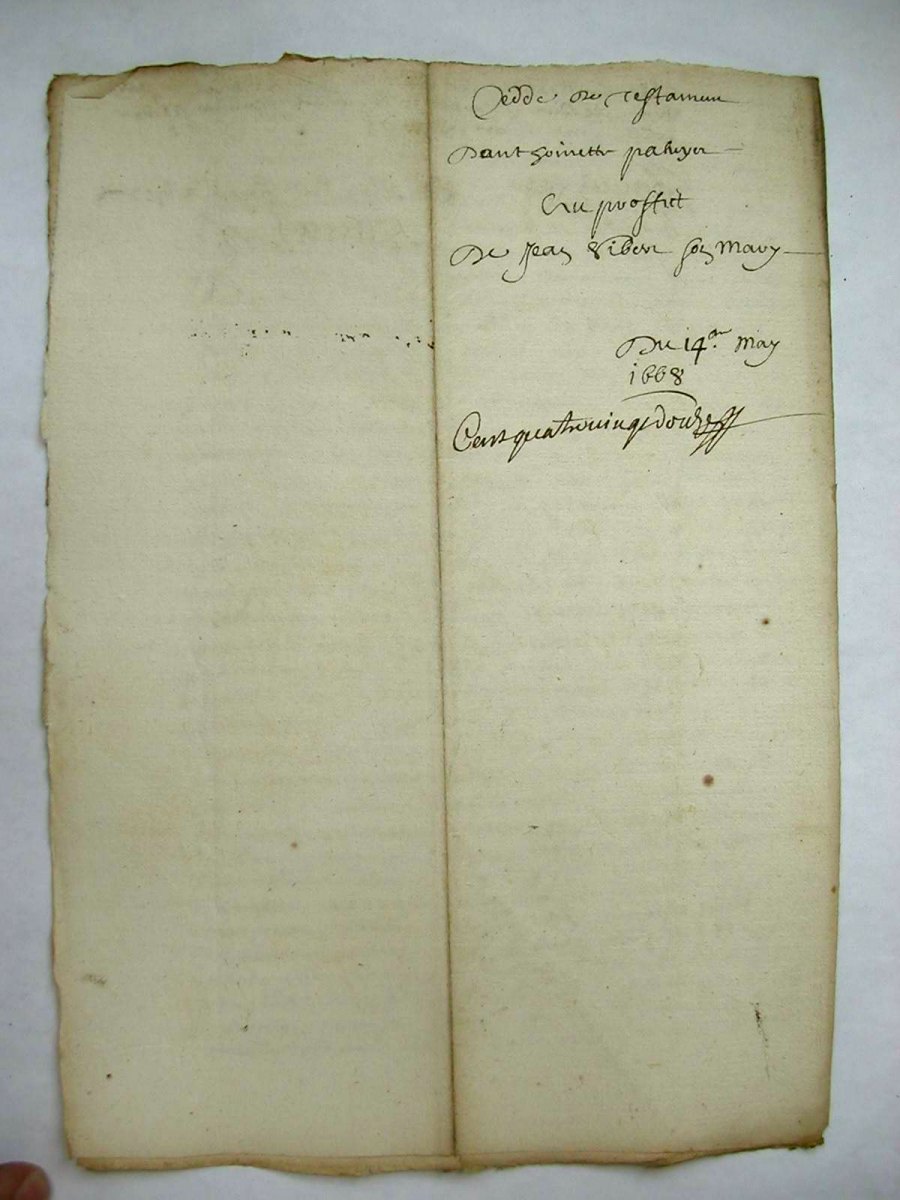 Cedde de Testamen
Danthoinette paheyer
Au proffict
De Jean Viber son Mary
Du 14.me May
1668
Cent quatre vingt douze